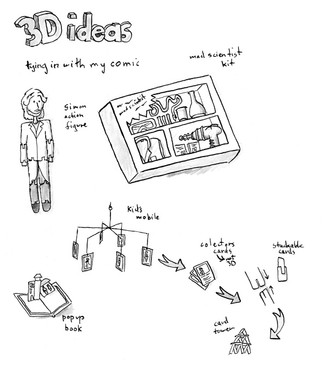 3D ideas
tying in with my comic
mad scientist
kit
Simon
action
figure
mad scientist
kids
mobile
colectors
cards
not
3D
stackable
cards
popup
book
card
tower